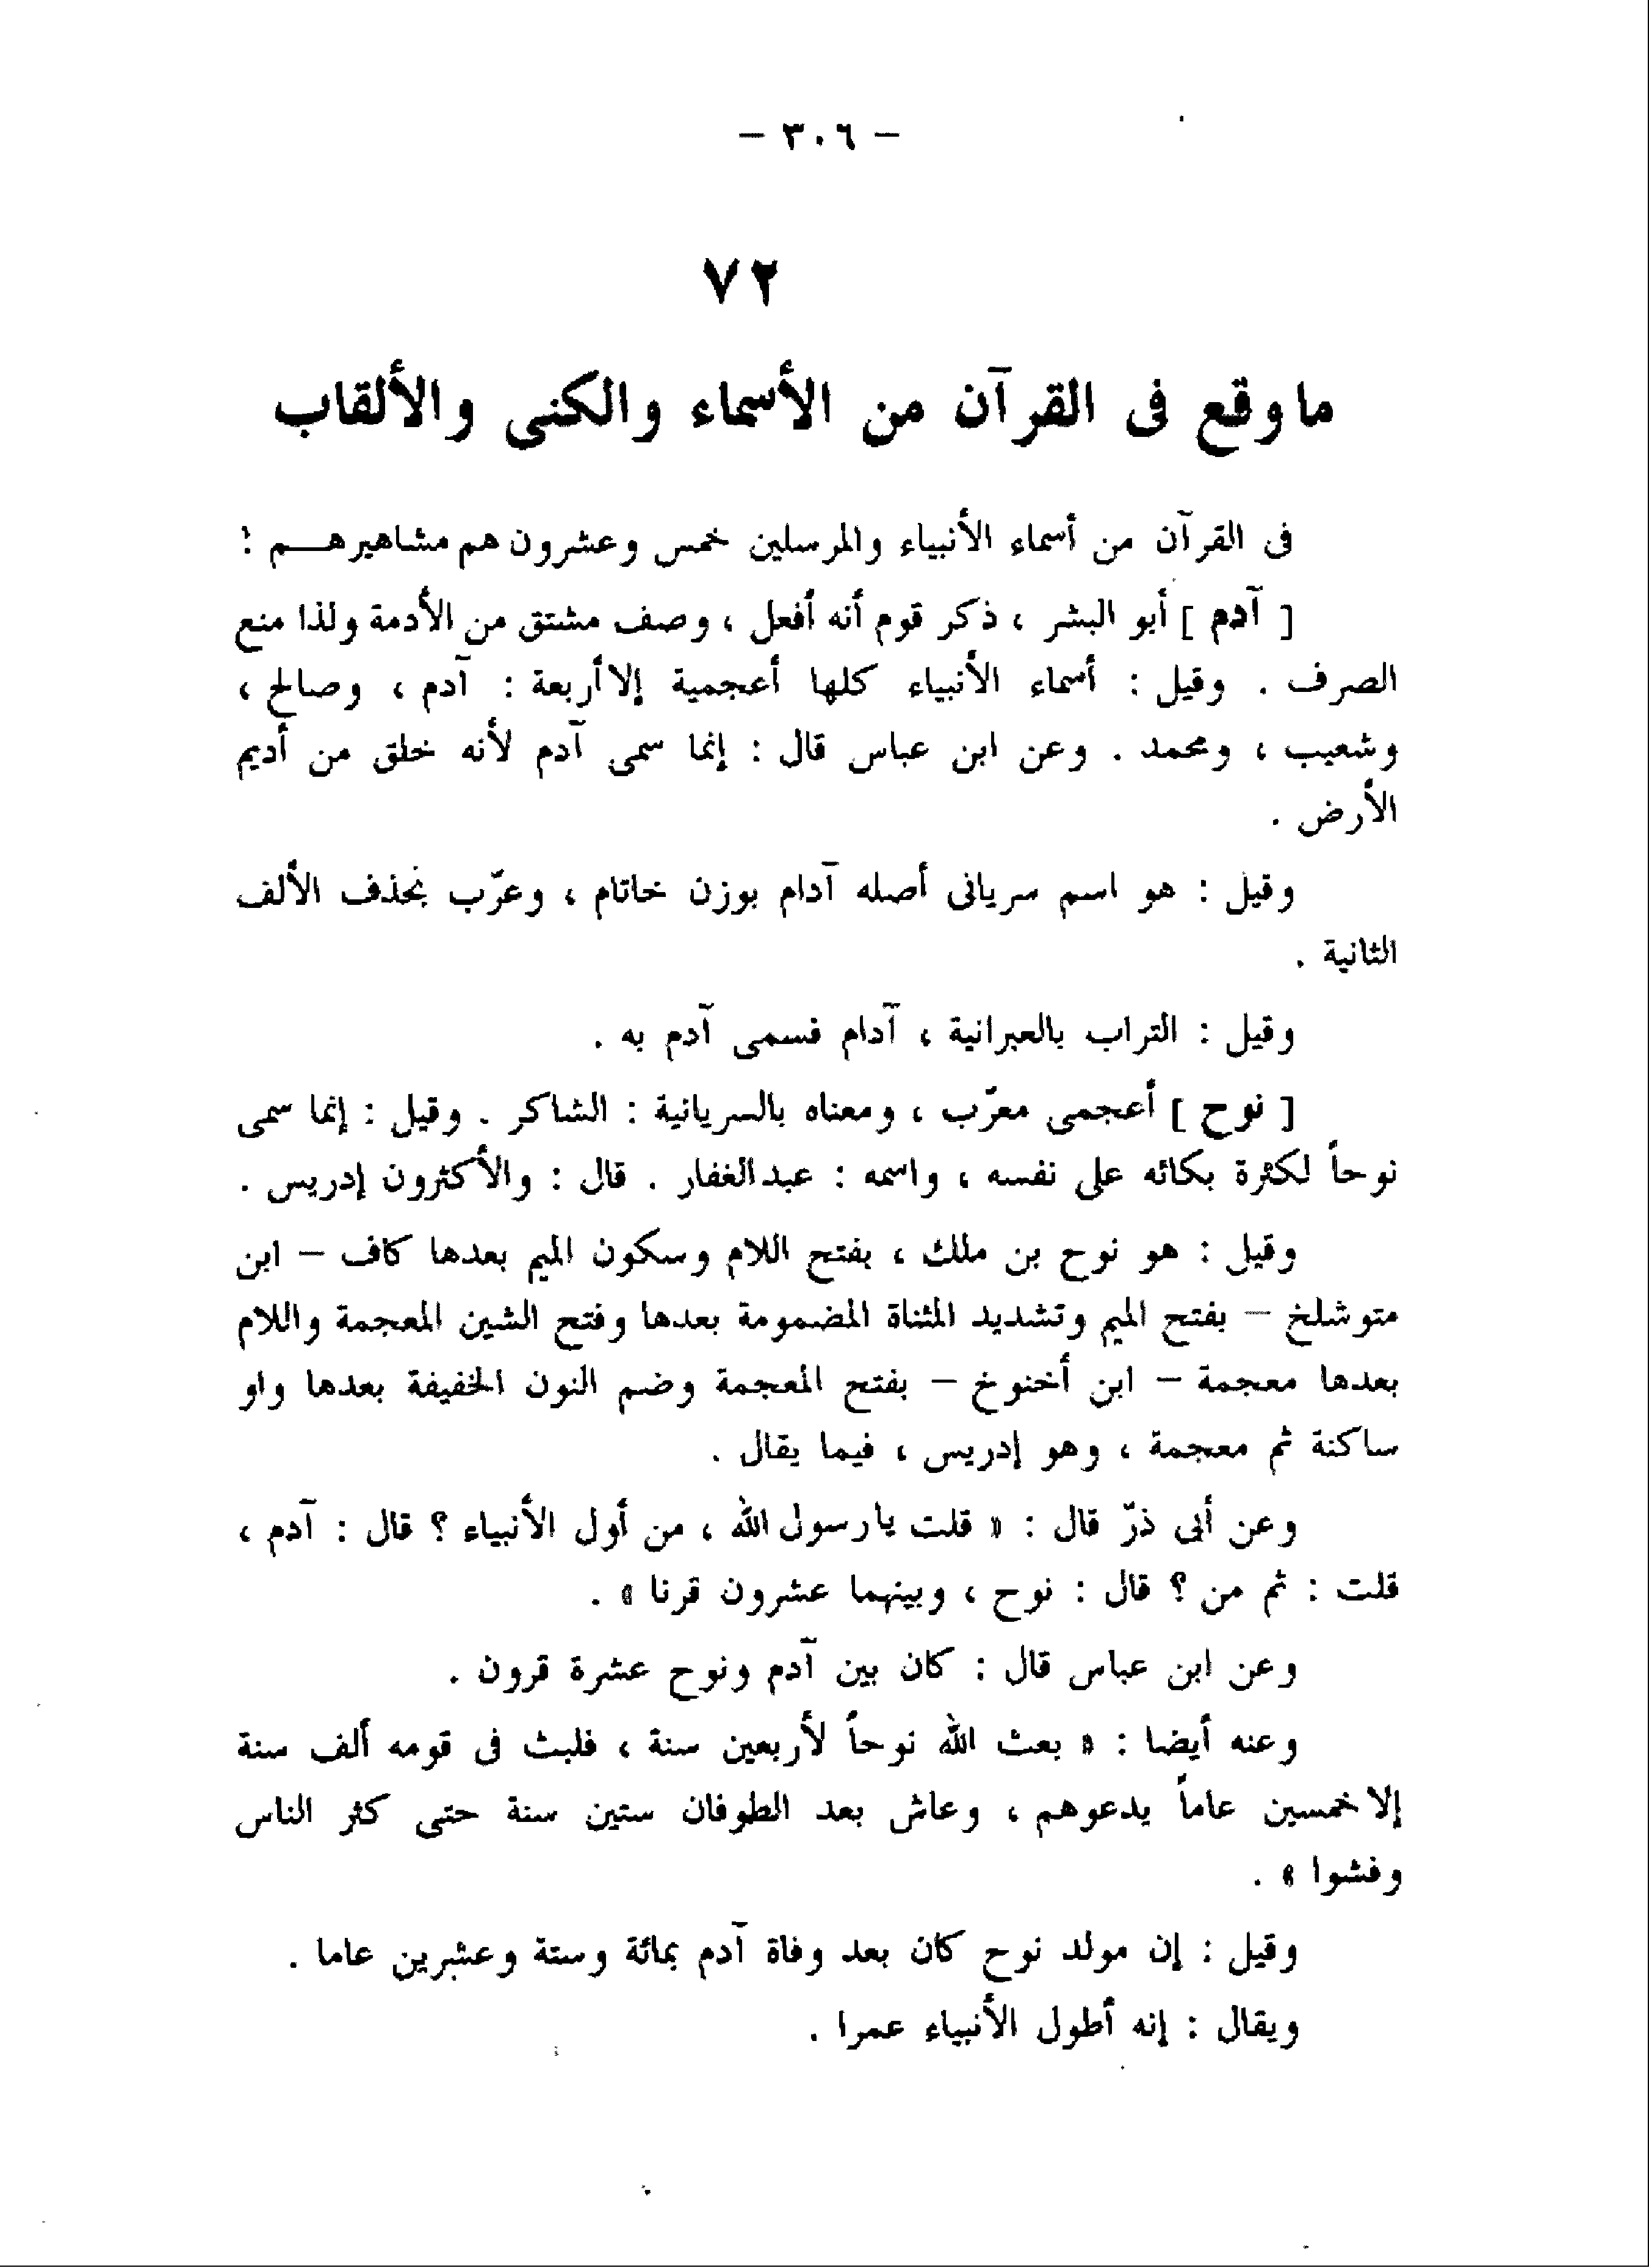 — ٣٠٦ —
٧٢
ماوقع فى القرآن من الأسماء والكنى والألقاب
فى القرآن من أسماء الأنبياء والمرسلين خمس وعشرون هم مشاهيرهـــم :
[ آدم ] أبو البشر ، ذكر قوم أنه أفعل ، وصف مشتق من الأدمة ولذا منع
الصرف . وقيل : أسماء الأنبياء كلها أعجمية إلا أربعة : آدم ، وصالح ،
وشعيب ، ومحمد . وعن ابن عباس قال : إنما سمى آدم لأنه خلق من أديم
الأرض .
وقيل : هو اسم سريانى أصله آدام بوزن خاتام ، وعرّب بحذف الألف
الثانية .
وقيل : التراب بالعبرانية ، آدام فسمى آدم به .
[ نوح ] أعجمى معرّب ، ومعناه بالسريانية : الشاكر . وقيل : إنما سمى
نوحاً لكثرة بكائه على نفسه ، واسمه : عبدالغفار . قال : والأكثرون إدريس .
وقيل : هو نوح بن ملك ، بفتح اللام وسكون الميم بعدها كاف — ابن
متوشلخ — بفتح الميم وتشديد المثناة المضمومة بعدها وفتح الشين المعجمة واللام
بعدها معجمة — ابن أخنوخ — بفتح المعجمة وضم النون الخفيفة بعدها واو
ساكنة ثم معجمة ، وهو إدريس ، فيما يقال .
وعن أبى ذرّ قال : « قلت يارسول الله ، من أول الأنبياء ؟ قال : آدم ،
قلت : ثم من ؟ قال : نوح ، وبينهما عشرون قرنا » .
وعن ابن عباس قال : كان بين آدم ونوح عشرة قرون .
وعنه أيضا : « بعث الله نوحاً لأربعين سنة ، فلبث فى قومه ألف سنة
إلا خمسين عاماً يدعوهم ، وعاش بعد الطوفان ستين سنة حتى كثر الناس
وفشوا » .
وقيل : إن مولد نوح كان بعد وفاة آدم بمائة وستة وعشرين عاما .
ويقال : إنه أطول الأنبياء عمرا .